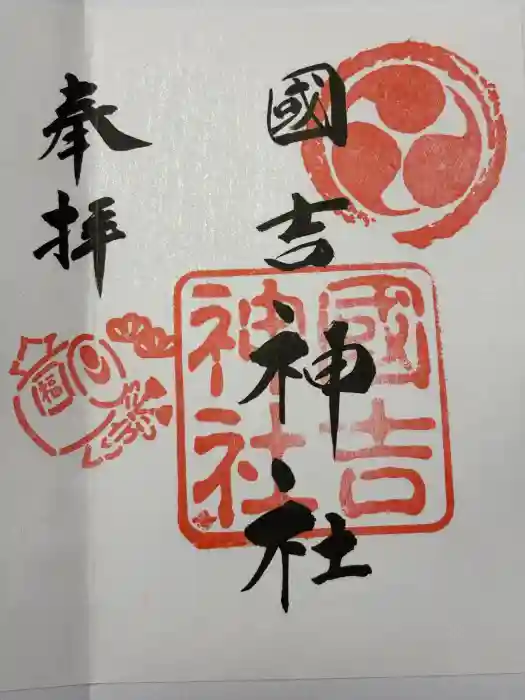 國吉神社
奉拝
國吉
神社
福